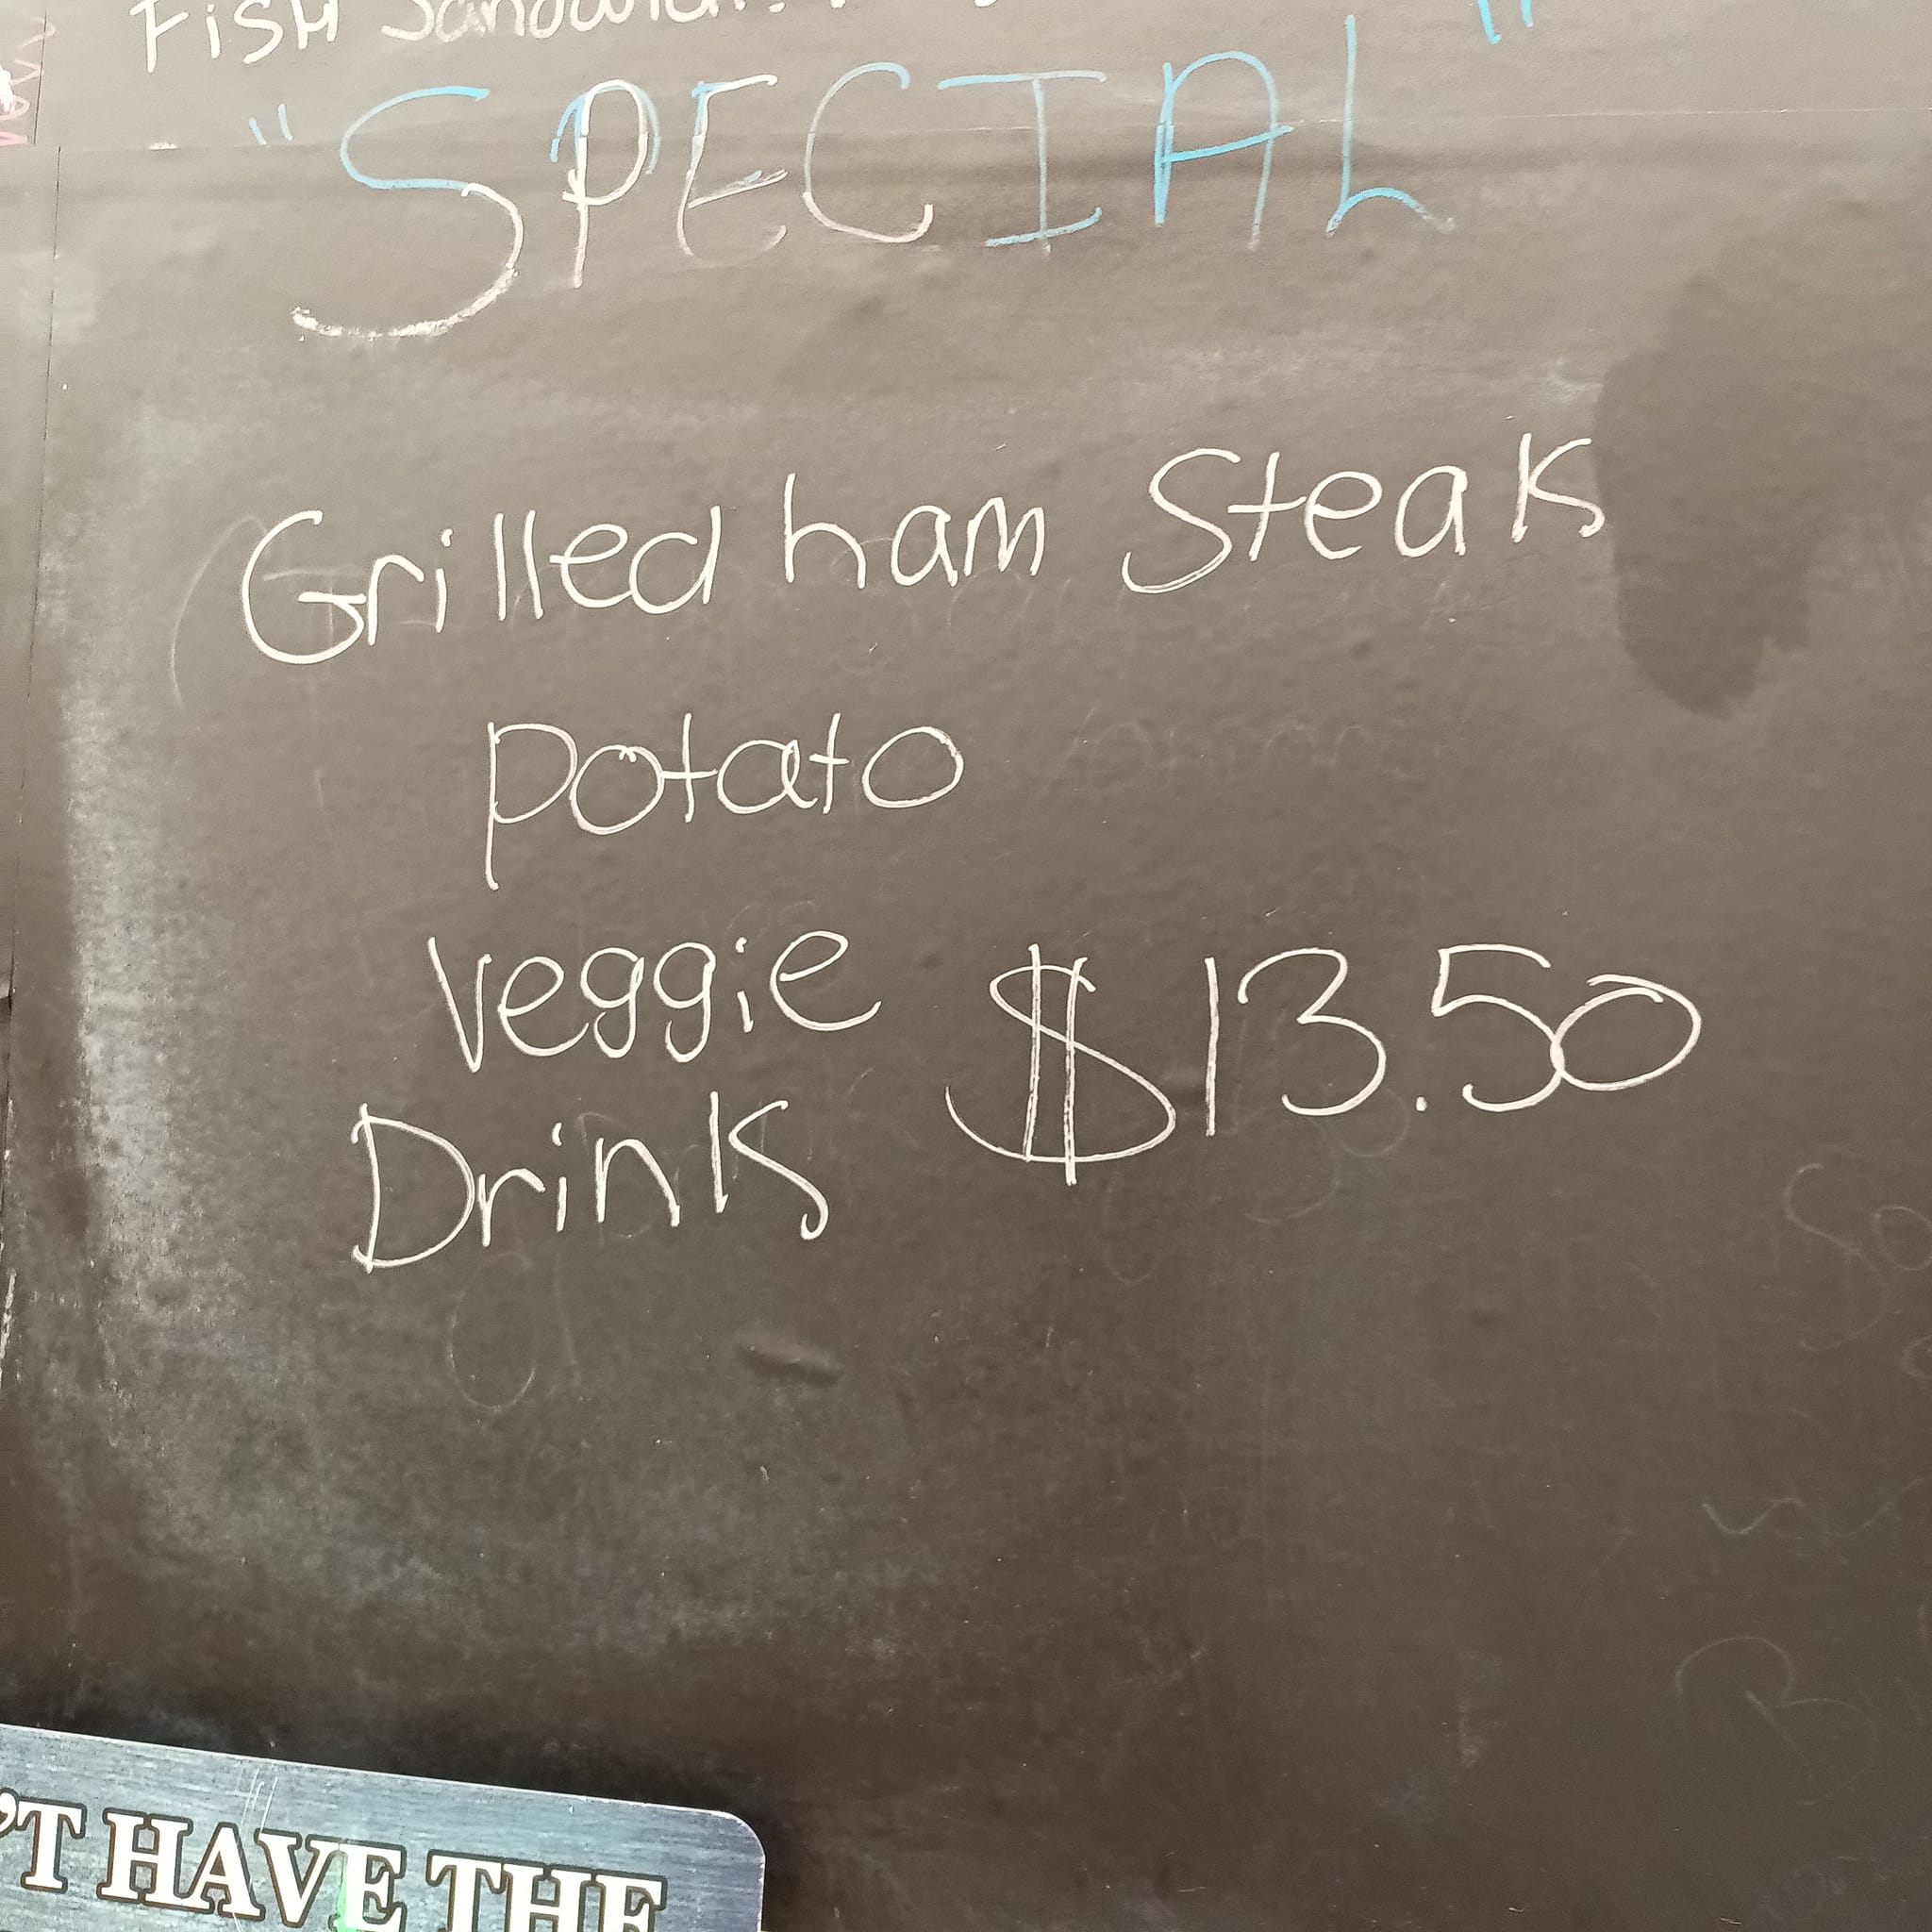 FiSH Sandwich
"SPECIAL"
Grilled ham Steak
potato
veggie $13.50
Drink
'T HAVE THE